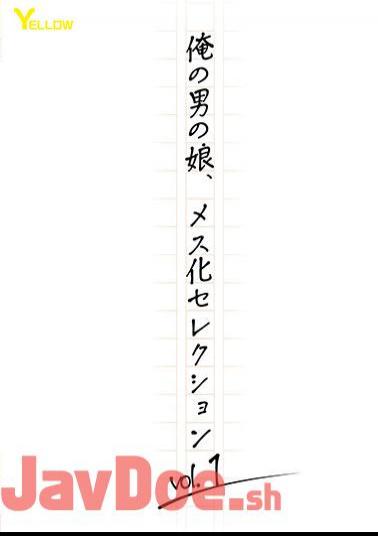 YELLOW
俺の男の娘、メス化セレクション
vol.1
JavDoe.sh